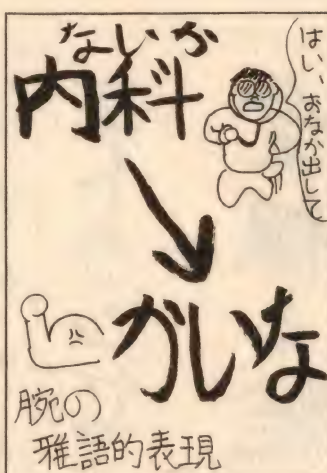 ないか
内科
はい、おなか出して
かいな
腕の
雅語的表現